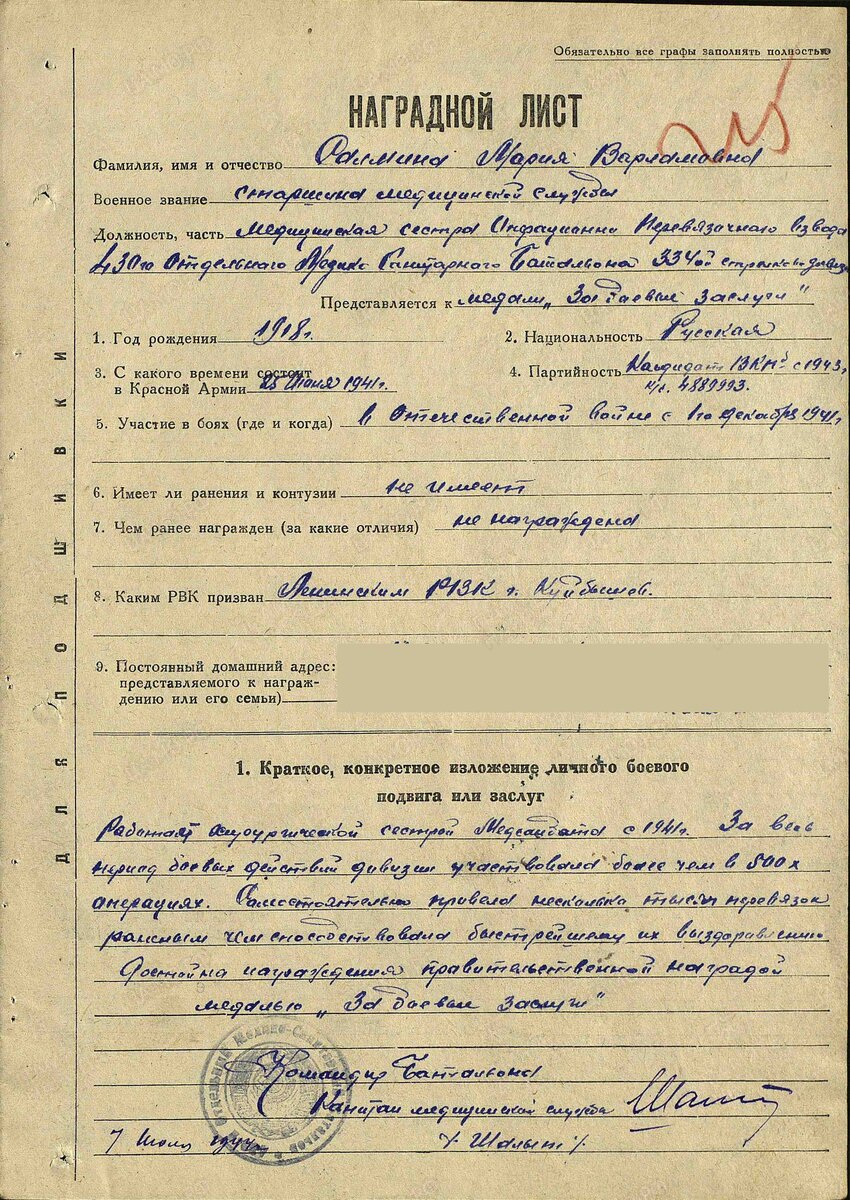 Обязательно все графы заполнять полностью
НАГРАДНОЙ ЛИСТ
Фамилия, имя и отчество Салмина Мария Варламовна
Военное звание старшина медицинской службы
Должность, часть Медицинская сестра Операционно Перевязочного взвода
430го Отдельного Медико Санитарного Баталиона 334ой стрелковой дивиз
Представляется к медали „За боевые заслуги"
1. Год рождения 1918г.
2. Национальность Русская
3. С какого времени состоит
в Красной Армии 25 июня 1941г.
4. Партийность Кандидат ВКПб с 1943г
к/к. 4889993.
5. Участие в боях (где и когда) в Отечественной войне с 1го декабря 1941г.
6. Имеет ли ранения и контузии не имеет
7. Чем ранее награжден (за какие отличия) не награждена
8. Каким РВК призван Ленинским РВК г. Куйбышев.
9. Постоянный домашний адрес:
представляемого к награж-
дению или его семьи)
ДЛЯ ПОДШИВКИ
1. Краткое, конкретное изложение личного боевого
подвига или заслуг
Работает хирургической сестрой Медсанбата с 1941г. За весь
период боевых действий дивизии участвовала более чем в 500х
операциях. Самостоятельно провела несколько тысяч перевязок
раненым чем способствовала быстрейшему их выздоравлению
Достойна награждения правительственной наградой
медалью „За боевые заслуги"
Командир Баталиона
Капитан медицинской службы
7 июля 1944г / Шалыт /